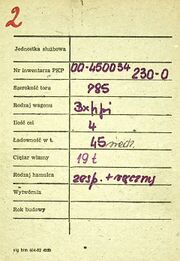 2
Jednostka służbowa
Nr inwentarza PKP 00-450034 230-0
Szerokość toru 785
Rodzaj wagonu
Ilość osi 4
Ładowność w t. 45
Ciężar własny 19 t
Rodzaj hamulca zesp. + ręczny
Wytwórnia
Rok budowy